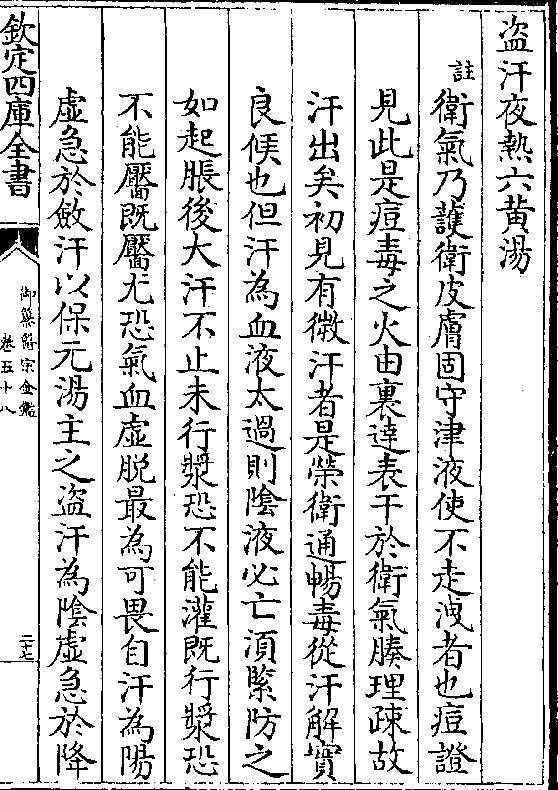 盜汗夜熱六黃湯
註
衛氣乃護衛皮膚固守津液使不走洩者也痘證
見此是痘毒之火由裏達表干於衛氣腠理疎故
汗出矣初見有微汗者是榮衛通暢毒從汗解實
良候也但汗為血液太過則陰液必亡須緊防之
如起脹後大汗不止未行漿恐不能灌既行漿恐
不能靨既靨尤恐氣血虛脫最為可畏自汗為陽
虛急於斂汗以保元湯主之盜汗為陰虛急於降
欽定四庫全書
御藥醫宗金鑑
卷五十八
二十七